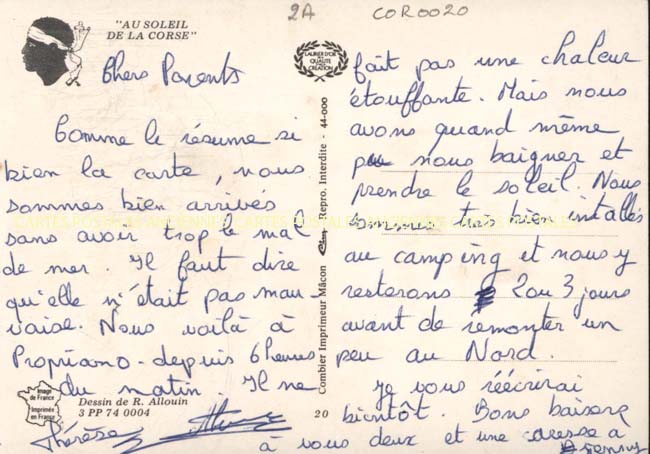 2A COR0020
"AU SOLEIL
DE LA CORSE"
LAURIER D'OR
DE
QUALITÉ
CRÉATION
Chers Parents
Comme le résume si
bien la carte, nous
sommes bien arrivés
sans avoir trop le mal
de mer. Il faut dire
qu'elle n'était pas mau-
vaise. Nous voilà à
Propriano - depuis 6 heures
du matin. Il ne
fait pas une chaleur
étouffante. Mais nous
avons quand même
pu nous baigner et
prendre le soleil. Nous
sommes très bien installés
au camping et nous y
resterons 2 ou 3 jours
avant de remonter un
peu au Nord.
Je vous réécrirai
bientôt. Bons baisers
à vous deux et une caresse à
Thérèse
Combier Imprimeur Mâcon
Repro. Interdite - 44-000
20
Image
de France
Imprimée
en France
Dessin de R. Allouin
3 PP 74 0004